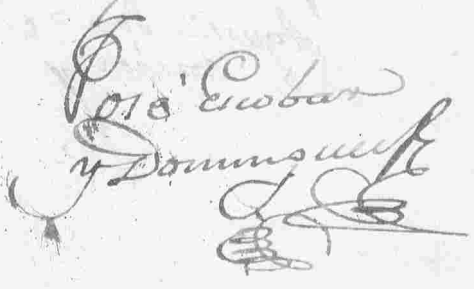 José Escobar
y Dominguez